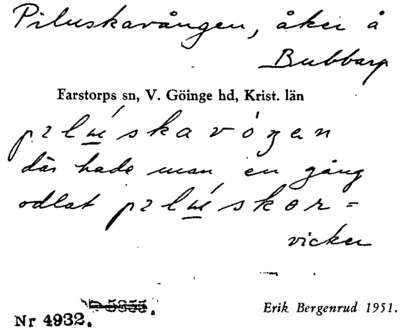 Piluskavången, åker å
Bubbarp
Farstorps sn, V. Göinge hd, Krist. län
där hade man en gång
odlat
vicker
D 5355.
Nr 4932.
Erik Bergenrud 1951.